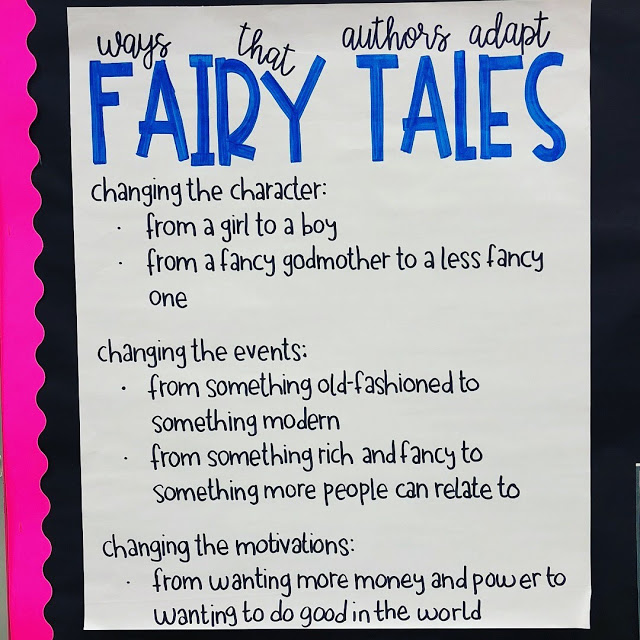 ways that authors adapt
FAIRY TALES
changing the character:
· from a girl to a boy
· from a fancy godmother to a less fancy
one
changing the events:
· from something old-fashioned to
something modern
· from something rich and fancy to
something more people can relate to
changing the motivations:
· from wanting more money and power to
wanting to do good in the world